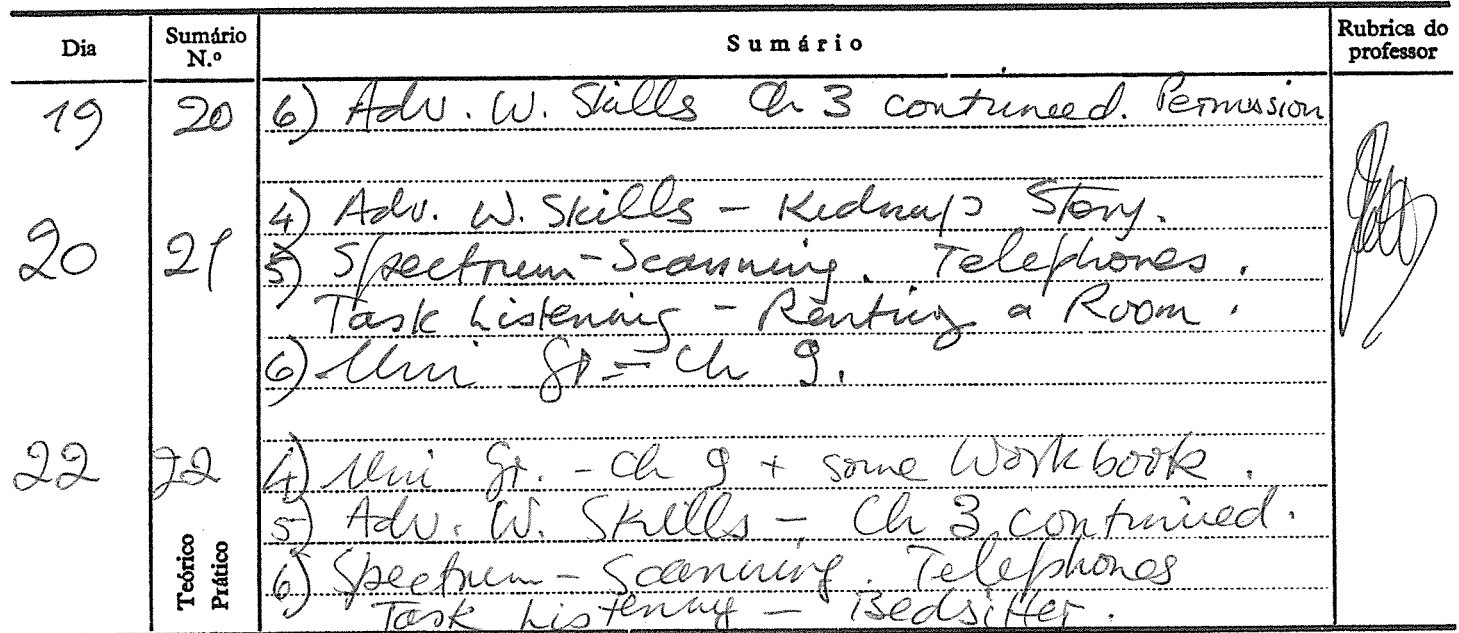 Dia Sumário N.º Sumário Rubrica do professor
19 20 6) Adv. W. Skills Ch 3 continued. Permission
4) Adv. W. Skills - Kidnap Story.
20 21 5) Spectrum - Scanning. Telephones.
Task Listening - Renting a Room.
6) Uni Gr. - Ch 9.
22 22 4) Uni Gr. - Ch 9 + some Workbook.
5) Adv. W. Skills - Ch 3 continued.
6) Spectrum - Scanning. Telephones
Task Listening - Bedsitter.
Teórico
Prático